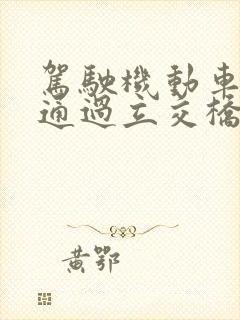 駕駛機動車
通過立交橋
黃鄂